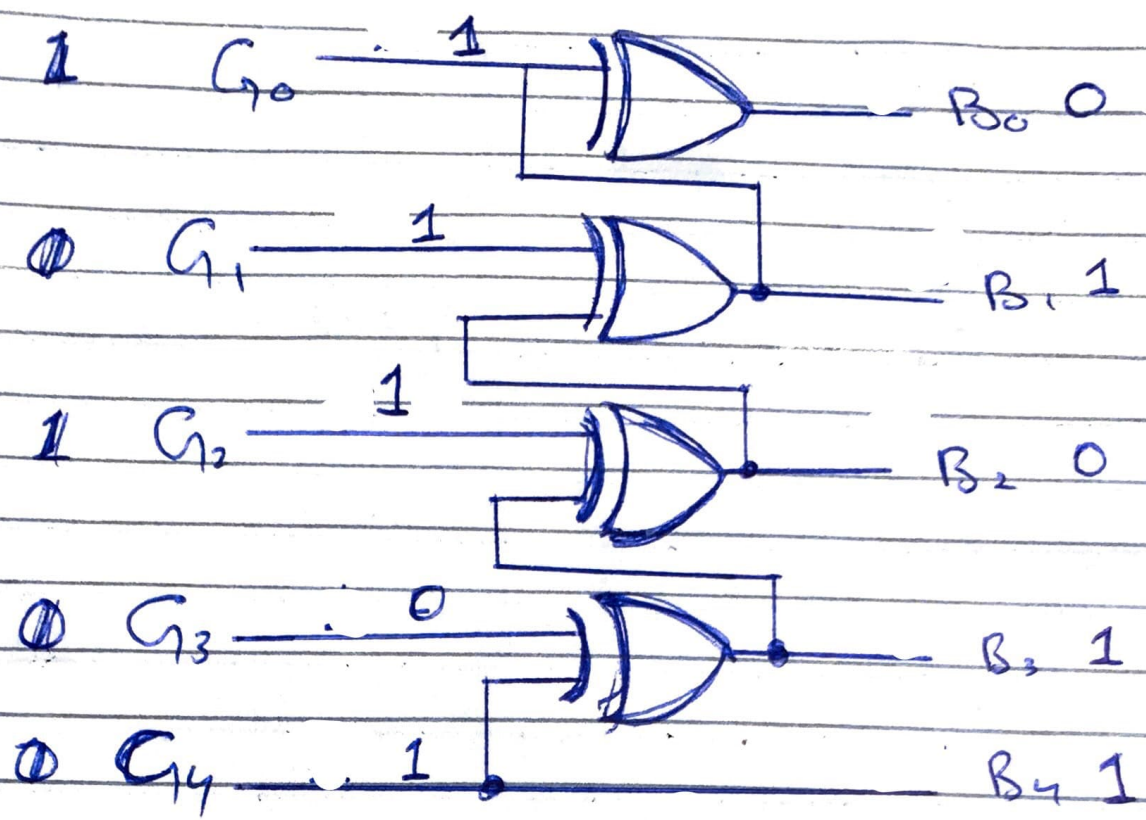 1 G0 1 B0 0
0 G1 1 B1 1
1 G2 1 B2 0
0 G3 0 B3 1
0 G4 1 B4 1